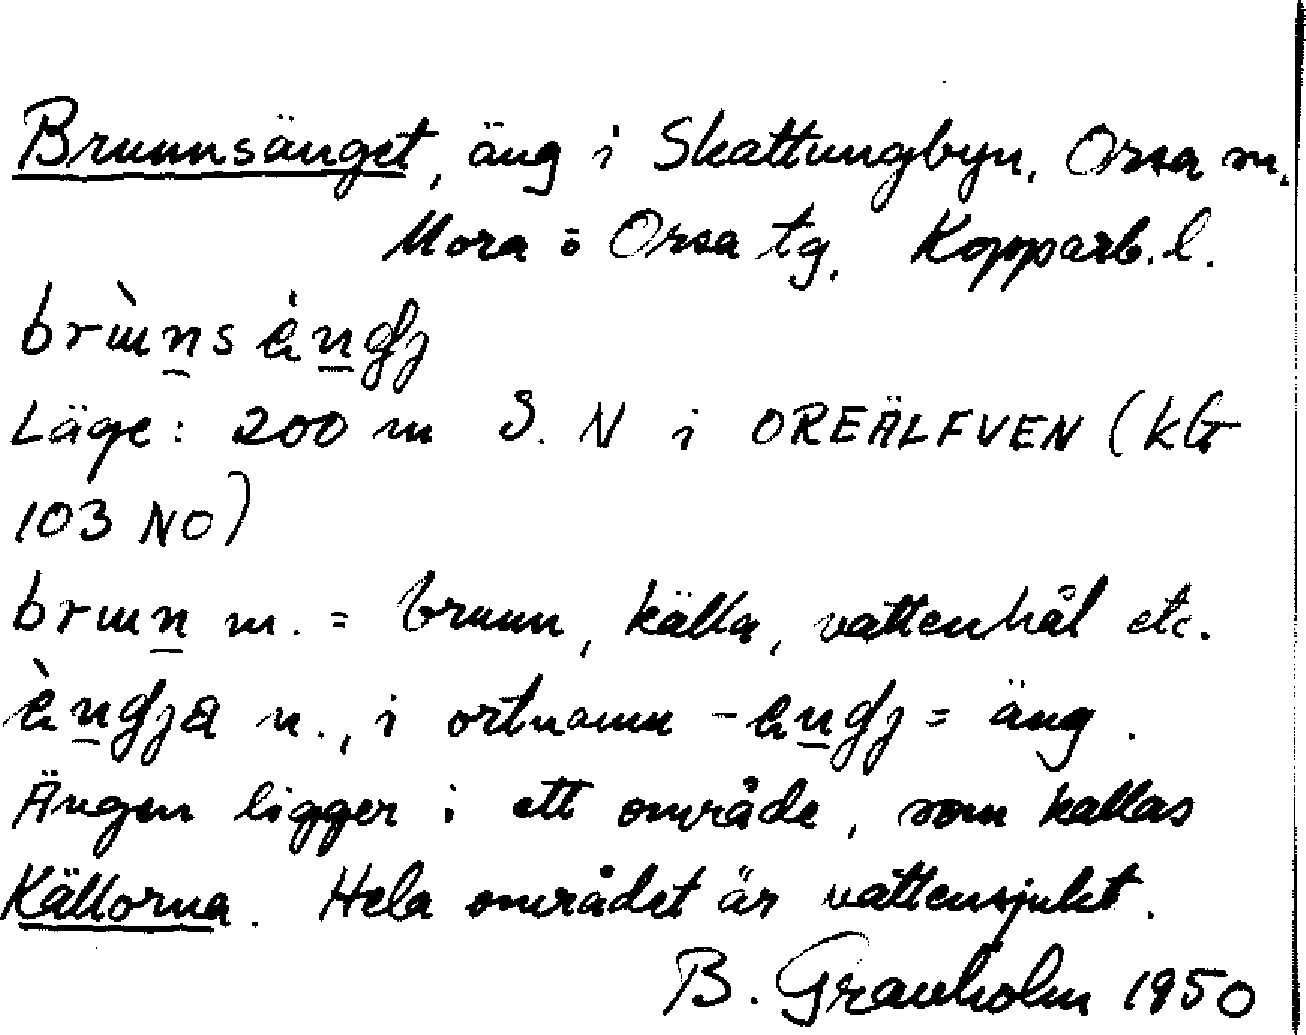 Brunnsänget, äng i Skattungbyn, Orsa sn.
Mora o Orsa tg, Kopparb. l.
Läge: 200 m S. N i OREÄLFVEN (kbl
103 NO)
m. = brunn, källa, vattenhål etc.
n., i ortnamn = äng.
Ängen ligger i ett område, som kallas
Källorna. Hela området är vattensjukt.
B. Granholm 1950